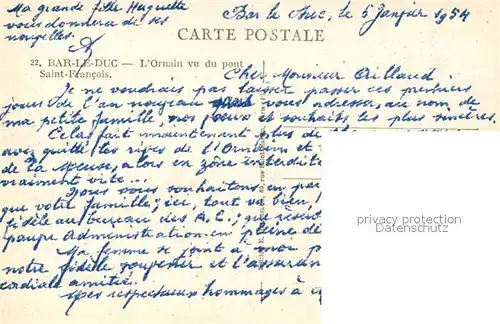 Ma grande fille Huguette
vous donnera de ses
nouvelles.
Bar le Duc, le 5 Janvier 1954
CARTE POSTALE
22. BAR-LE-DUC — L'Ornain vu du pont
Saint-François.
Cher Monsieur Aillaud.
Je ne voudrais pas laisser passer ces premiers
jours de l'an nouveau sans vous adresser, au nom de
ma petite famille, nos voeux et souhaits les plus sincères.
Cela fait maintenant plus de
avez quitté les rives de l'Ornain et
de la Meuse, alors en zône interdite
vraiment vite...
Nous vous souhaitons en
que votre famille; ici, tout va bien,
fidèle au bureau des A.C., que
pauvre Administration en pleine
Ma femme se joint à moi
notre fidèle souvenir et l'
cordiale amitié.
Mes respectueux hommages à
privacy protection
Datenschutz